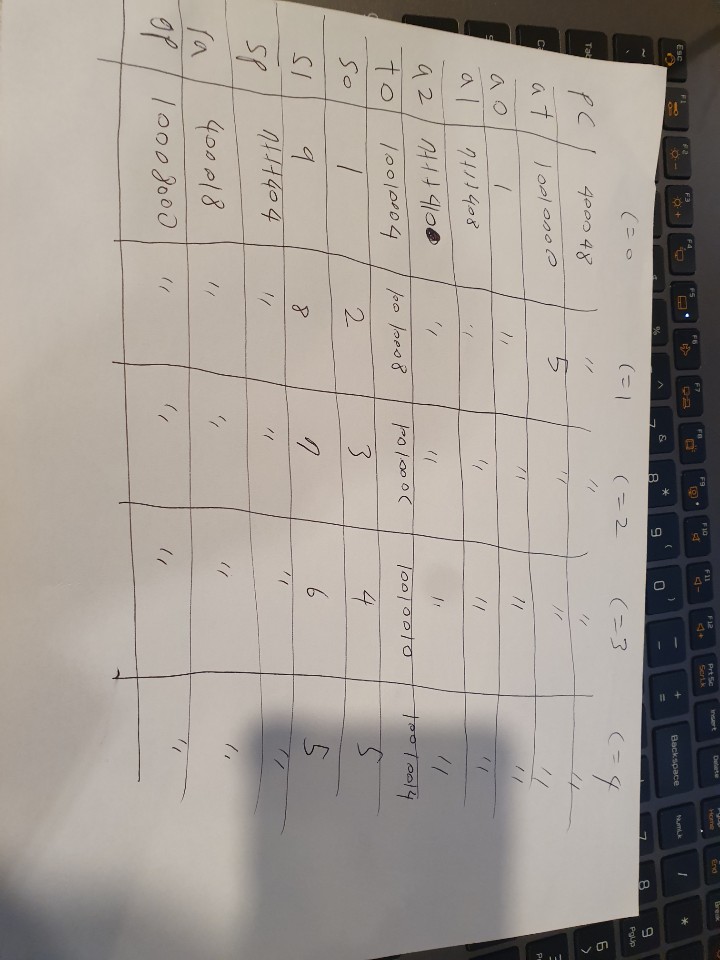 C=0 C=1 C=2 C=3 C=4
PC 400048 " " " "
at 10010000 5 " " "
a0 1 " " " "
a1 7111408 " " " "
a2 7111410 " " " "
t0 10010004 10010008 1001000C 10010010 10010014
S0 1 2 3 4 5
S1 9 8 7 6 5
SP 7111404 " " " "
ra 400018 " " " "
gp 10008000 " " " "
Esc F1 F2 F3 F4 F5 F6 F7 F8 F9 F10 F11 F12 Prt Sc Insert Delete
ScrLk
~ % ^ & * ( ) _ +
7 8 9 0 - = Backspace NumLk / *
Tab 7 8 9
Home PgUp
End
Break
6